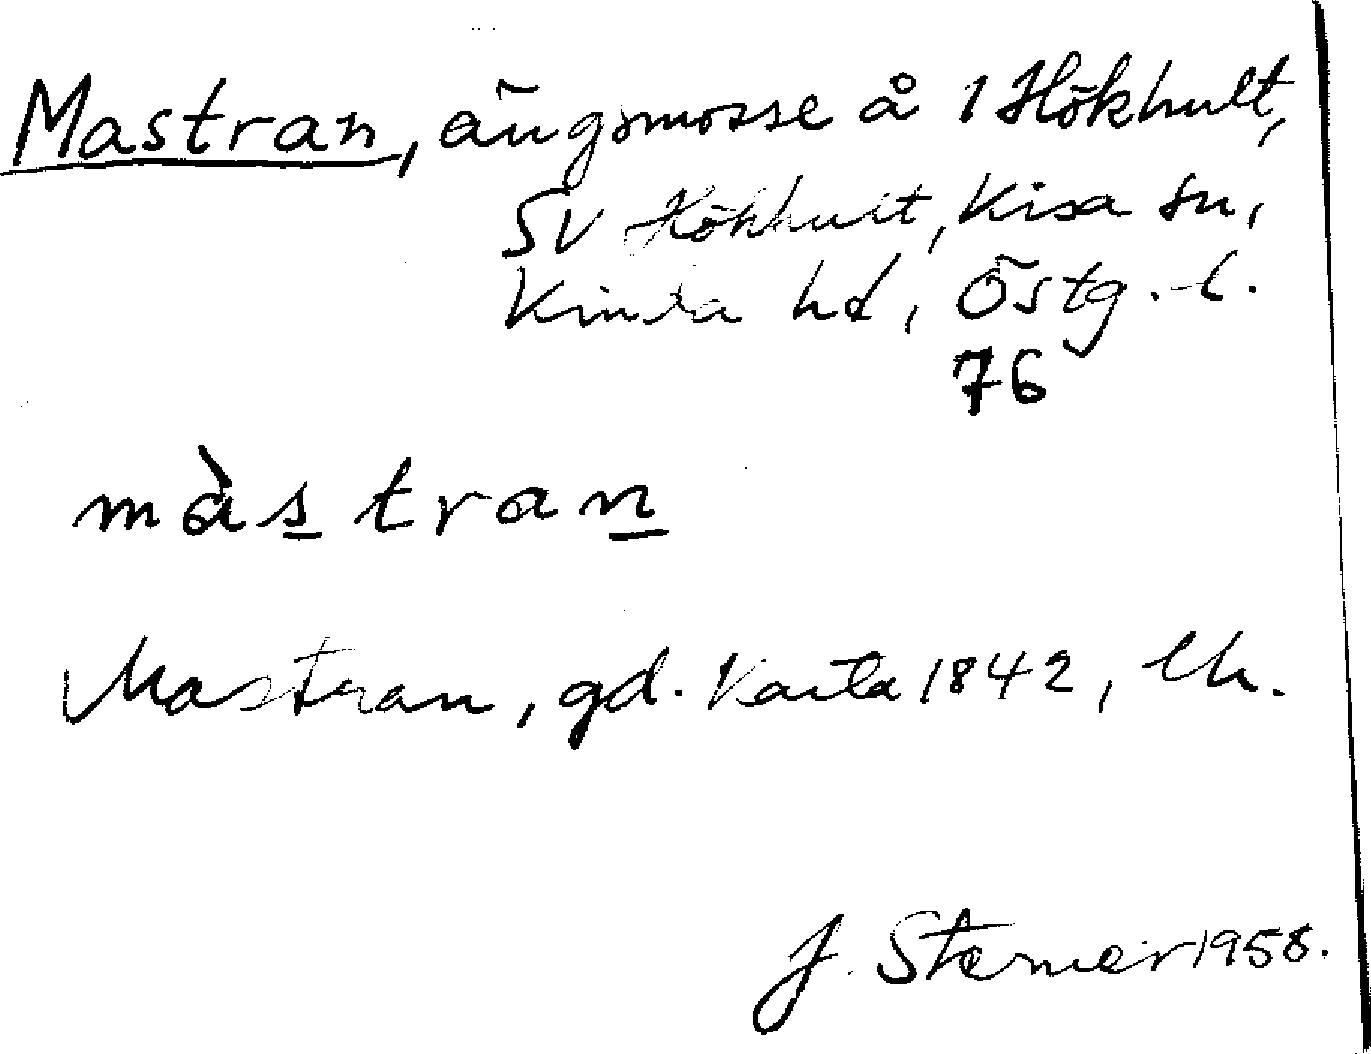 Mastran, ängsmosse å 1 Hökhult,
SV Hökhult, Kisa sn,
Kinda hd, Östg. l.
76
màs tran
Mastran, gd. Karta 1842, Ch.
J. Sterner 1958.